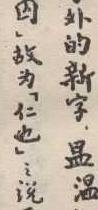 外的新字．昷溫
因」故为「仁也」之说